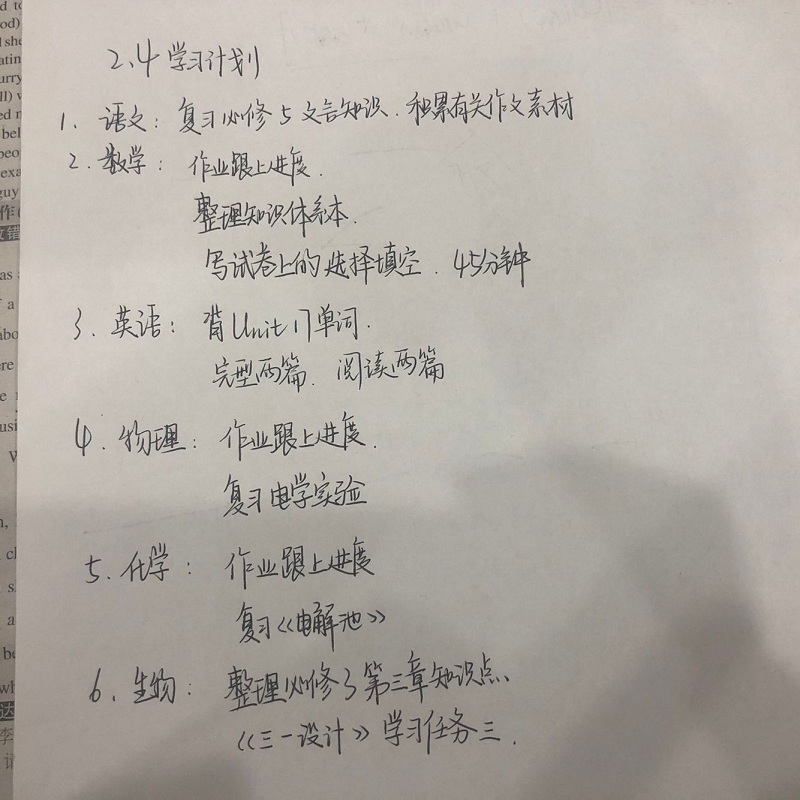 2.4 学习计划
1. 语文: 复习必修5文言知识. 积累有关作文素材
2. 数学: 作业跟上进度.
整理知识体系本.
写试卷上的选择填空. 45分钟
3. 英语: 背Unit 17单词.
完型两篇. 阅读两篇
4. 物理: 作业跟上进度.
复习电学实验
5. 化学: 作业跟上进度
复习《电解池》
6. 生物: 整理必修3第三章知识点、
《三一设计》学习任务三.